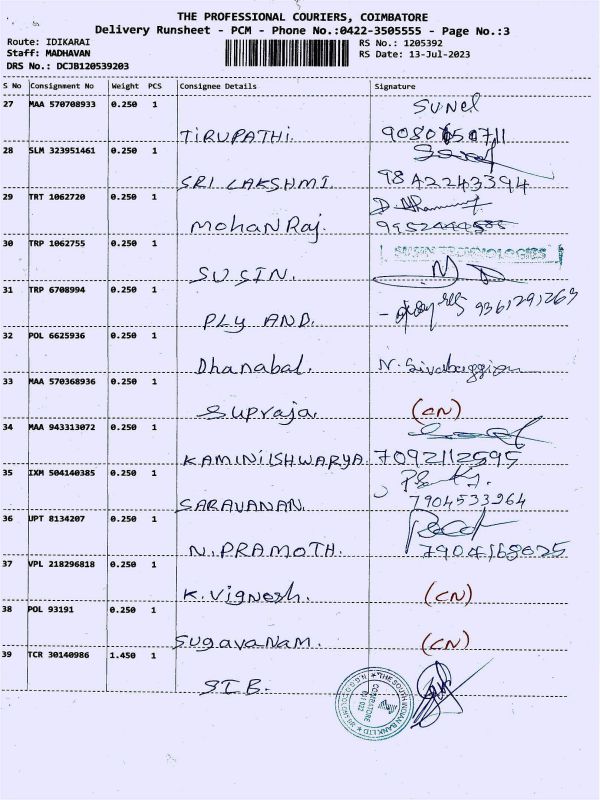 THE PROFESSIONAL COURIERS, COIMBATORE
Delivery Runsheet - PCM - Phone No.:0422-3505555 - Page No.:3
Route: IDIKARAI
RS No.: 1205392
Staff: MADHAVAN
RS Date: 13-Jul-2023
DRS No.: DCJB120539203
S No Consignment No Weight PCS Consignee Details Signature
27 MAA 570708933 0.250 1
TIRUPATHI.
28 SLM 323951461 0.250 1
SRI LAKSHMI. 9842243394
29 TRT 1062720 0.250 1
MohanRaj.
30 TRP 1062755 0.250 1 SUSIN TECHNOLOGIES
SUSIN.
31 TRP 6708994 0.250 1
PLY AND. 9361291269
32 POL 6625936 0.250 1
Dhanabal.
33 MAA 570368936 0.250 1
Supraja. (CN)
34 MAA 943313072 0.250 1
KAMINIISHWARYA 7092112595
35 IXM 504140385 0.250 1
SARAVANAN. 7904533964
36 UPT 8134207 0.250 1
N. PRAMOTH. 7904168025
37 VPL 218296818 0.250 1
K. Vignesh. (CN)
38 POL 93191 0.250 1
Sugavanam. (CN)
39 TCR 30140986 1.450 1
S.I.B.
THE SOUTH INDIAN BANK LTD
COIMBATORE